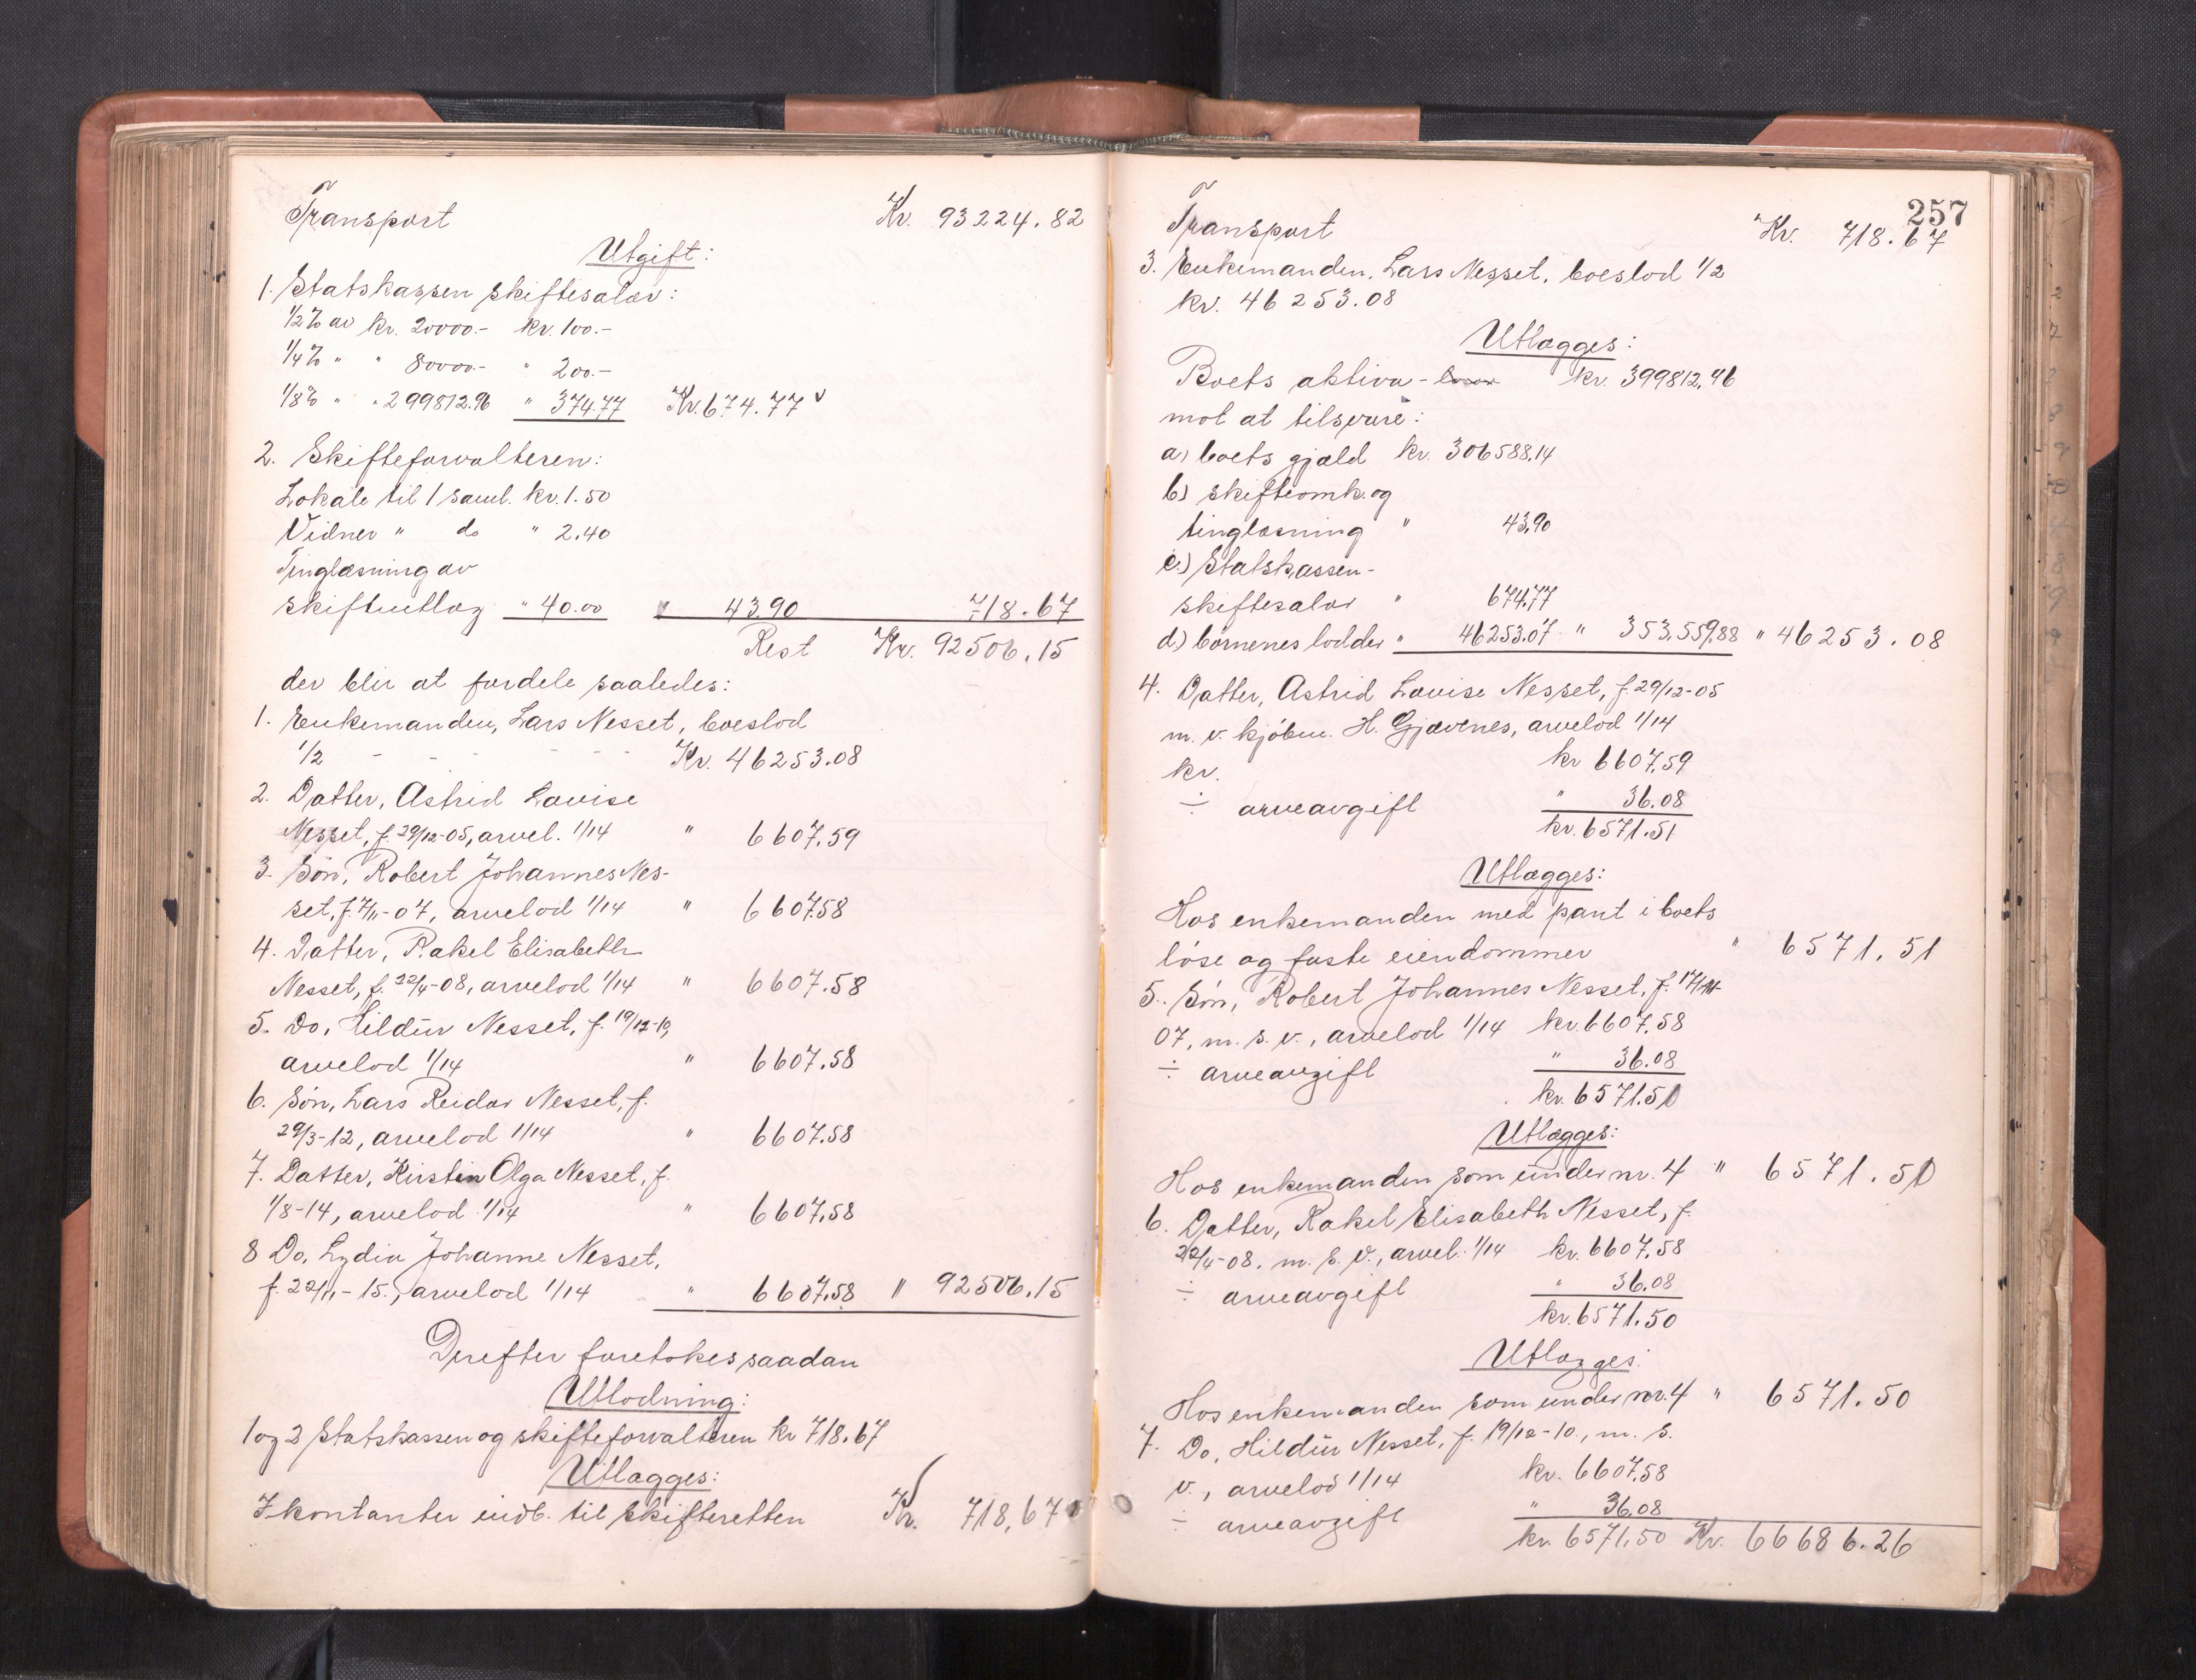 Transport Kr. 93224.82
Utgift:
1. Statskassen skiftesalær:
1/2 % av kr. 20000.- kr. 100.-
1/4 % " " 80000.- " 200.-
1/8 % " " 299812.96 " 374.77 Kr. 674.77
2. Skifteforvalteren:
Lokale til 1 saml. kr. 1.50
Vidner " do " 2.40
Tinglæsning av
skifteutlæg " 40.00 " 43.90 718.67
Rest Kr. 92506.15
der blir at fordele saaledes:
1. Enkemanden, Lars Nesset, boeslod
1/2 - - - - - - Kr. 46253.08
2. Datter, Astrid Lovise
Nesset, f. 29/12-05, arvel. 1/14 " 6607.59
3. Søn, Robert Johannes Nes-
set, f. 7/11-07, arvelod 1/14 " 6607.58
4. Datter, Rakel Elisabeth
Nesset, f. 22/4-08, arvelod 1/14 " 6607.58
5. Do, Hildur Nesset, f. 19/12-10,
arvelod 1/14 " 6607.58
6. Søn, Lars Reidar Nesset, f.
29/3-12, arvelod 1/14 " 6607.58
7. Datter, Kirstin Olga Nesset, f.
1/8-14, arvelod 1/14 " 6607.58
8 Do, Lydia Johanne Nesset,
f. 22/11-15., arvelod 1/14 " 6607.58 " 92506.15
Derefter foretokes saadan
Utlodning:
1 og 2 Statskassen og skifteforvalteren kr 718.67
Utlægges:
I kontanter indb. til skifteretten Kr. 718,67
257
Transport Kr. 718.67
3. Enkemanden, Lars Nesset, boeslod 1/2
kr. 46253.08
Utlægges:
Boets aktiva - kr. 399812,96
mot at tilsvare:
a) boets gjæld kr. 306588,14
b) skifteomk. og
tinglæsning " 43,90
c.) Statskassen -
skiftesalær " 674,77
d) børnenes lodder " 46253.07 " 353.559.88 " 46253.08
4. Datter, Astrid Lovise Nesset, f. 29/12-05
m. v. kjøbm. H. Gjævenes, arvelod 1/14
kr. kr 6607,59
÷ arveavgift " 36.08
kr. 6571.51
Utlægges:
Hos enkemanden med pant i boets
løse og faste eiendommer " 6571.51
5. Søn, Robert Johannes Nesset, f. 17/11-
07, m. s. v., arvelod 1/14 kr. 6607,58
÷ arveavgift " 36.08
kr. 6571.50
Utlægges:
Hos enkemanden som under nr. 4 " 6571.50
6. Datter, Rakel Elisabeth Nesset, f.
22/4-08. m. s. v., arvel. 1/14 kr. 6607,58
÷ arveavgift " 36.08
kr. 6571.50
Utlægges:
Hos enkemanden som under nr. 4 " 6571.50
7. Do, Hildur Nesset, f. 19/12-10, m. s.
v., arvelod 1/14 kr. 6607,58
÷ arveavgift " 36.08
kr. 6571,50 Kr. 66686.26